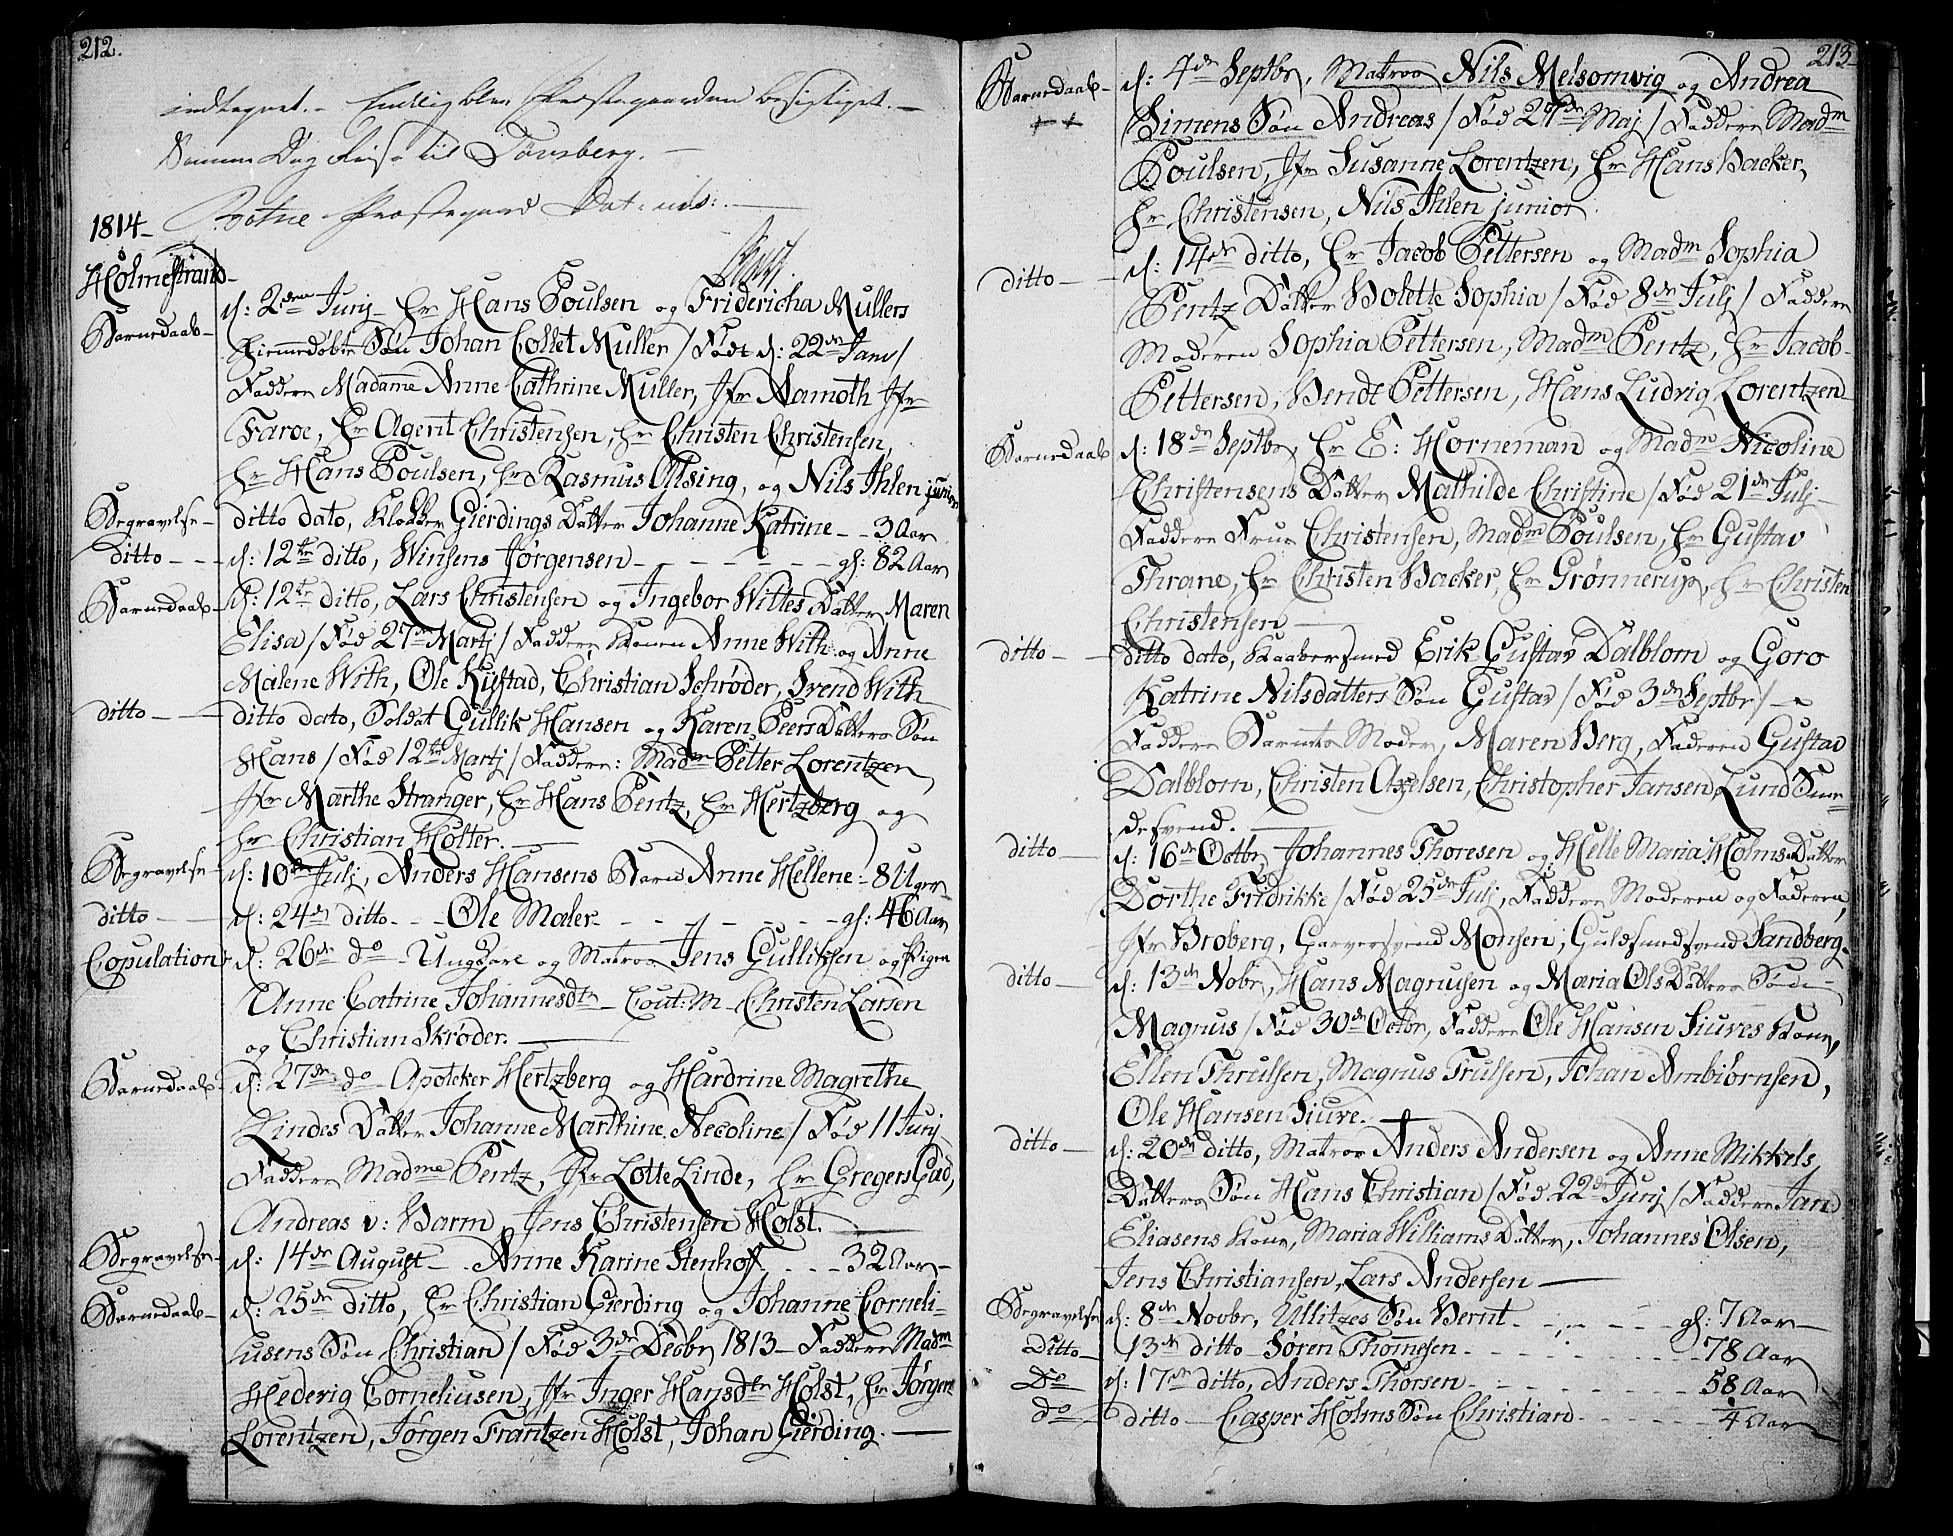 212.
indtegnet.- Endelig blev Præstegaarden besigtiget.-
Samme Dag Reise til Tønsberg.-
Botne Præstegaard Dat: uds:.
1814-
Holmestrand-
Barnedaab- d: 2den Junj- Hr Hans Poulsen og Fridericha Mullers
hiemmedøbte Søn Johan Collet Muller / Født d: 22de Janv/
Faddere Madame Anne Cathrine Muller, Jfr Aamoth Jfr
Faroe, Hr Agent Christensen, Hr Christen Christensen,
Hr Hans Poulsen, Hr Rasmus Ollsing, og Nils Ihlen junior
Begravelse- ditto dato, Klokker Gierdings Datter Johanne Katrine - - 3 Aar
ditto - - - d: 12te ditto, Winsens Jørgensen - - - - - gl: 82 Aar
Barnedaab- d: 12te ditto, Lars Christensen og Ingebor Wittes Datter Maren
Elisa / Fød 27de Martj / Faddere Konen Anne With og Anne
Malene With, Ole Kiistad, Christian Schrøder, Svend With
ditto - - ditto dato, Soldat Gullik Hansen og Karen Peers Datters Søn
Hans / Fød 12te Martj / Faddere: Madm Petter Lorentzen
Jfr Marthe Stranger, Hr Hans Pentz, Hr Hertzberg og
Hr Christian Holter.
Begravelse- d: 10de Julj, Anders Hansens Barn Anne Hellene- 8 Uger
ditto - d: 24de ditto - - - Ole Maler - - - - - gl: 46 Aar
Copulation- d: 26de do - Ungkare og Matros Jens Gulliksen og Pigen
Anne Catrine Johannesdtr - Cout: M- Christen Larsen
og Christian Skrøder.
Barnedaab- d: 27de do - Apoteker Hertzberg og Hardrine Magrethe
Lindes Datter Johanne Marthine Necoline / Fød 11 Junj
Faddere Madme Pentz, Jfr Lotte Linde, Hr Gregers Gad,
Andreas v: Harm Jens Christensen Holst.
Begravelse- d: 14de August - . Anne Karine Stenhoff - - - 32 Aar-
Barnedaab- d: 25de ditto, Hr Christian Gierding og Johanne Corneli-
usens Søn Christian / Fød 3de Decbr 1813 - Faddere Madm
Hedevig Corneliusen, Jfr Inger Hansdtr Holst, Hr Jørgen
Lorentzen, Jørgen Frantzen Holst, Johan Gierding.
213-
Barnedaab- d: 4de Septbr, Matros Nils Melsomvig og Andrea
Simens Søn Andreas / Fød 27de Maj / Faddere Madm
Poulsen, Jfr Susanne Lorentzen, Hr Hans Backer,
Hr Christensen, Nils Ihlen junior.
ditto - d: 14de ditto, Hr Jacob Pettersen og Madm Sophia
Pentz Datter Bolette Sophia / Fød 8de Julj / Faddere
Moderen Sophia Pettersen, Madm Pentz, Hr Jacob
Pettersen, Bendt Pettersen, Hans Ludvig Lorentzen
Barnedaab d: 18de Septbr, Hr E: Horneman og Madm Nicoline
Christensens Datter Mathilde Christine / Fød 21de Julj-
Faddere Frue Christensen, Madm Poulsen, Hr Gustav
Thrane, Hr Christen Backer, Hr Grønnerup, Hr Christen
Christensen
ditto - ditto dato, Kaabersmed Erik Gustav Dalblom og Goro
Katrine Nilsdatters Søn Gustav / Fød 3de Septbr/ -
Faddere Barnets Moder, Maren Berg, Faderen Gustav
Dalblom, Christen Axelsen, Christopher Jansen, Lund Sme-
desvend.
ditto - d: 16de Octbr, Johannes Thoresen og Helle Maria Holms Datter
Dorthe Fridrikke / Fød 25de Julj, Faddere Moderen og Faderen,
Jfr Broberg, Garversvend Monsen, Guldsmedsvend Sandberg.
ditto - d: 13de Nobr, Hans Magnusen og Maria Ols Datters Søn
Magnus / Fød 30de Octbr, Faddere Ole Hansen Siuves Kone,
Ellen Thrulsen, Magnus Trulsen, Johan Ambiørnsen,
Ole Hansen Siuve.
ditto - d: 20de ditto, Matros Anders Andersen og Anne Mikkels
Datters Søn Hans Christian / Fød 22de Junj / Faddere Jan
Eliasens Kone, Maria Williams Datter, Johannes Olsen,
Jens Christiansen, Lars Andersen
Begravelse d: 8de Novbr, Ullitzes Søn Bernt - - - - gl: 7 Aar-
Ditto- 13de ditto - Søren Thomesen - - - - - 78 Aar
Do d: 17de ditto, Anders Thorsen - - - - - 58 Aar
do ditto - Casper Holms Søn Christian - - - - 1/4 Aar